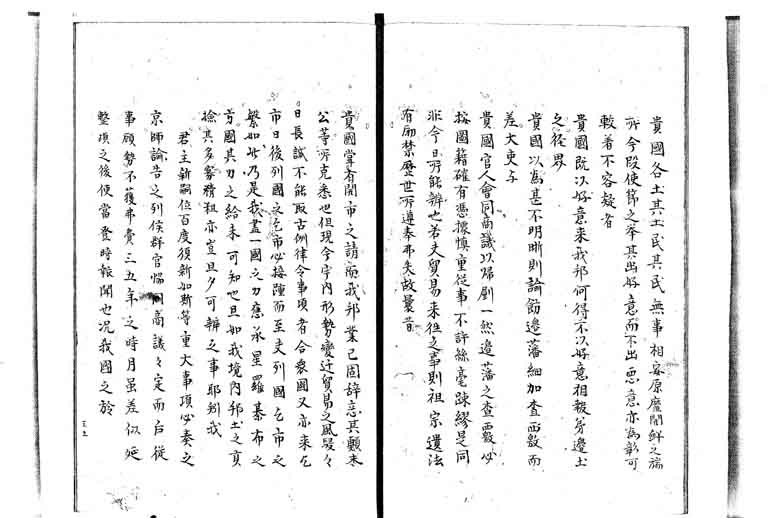 貴國各土其土民其民無事相容原靡鬩衅之端
所今段使節之挙其出好意而不出惡意亦為彰可
較著不容疑者
貴國既以好意来我邦何得不以好意相報弟邊土
之經界
貴國以為甚不明晰則諭飭邊藩細加査覈而
差大吏与
貴國官人會同商議以歸劃一然邊藩之査覈必
按圖籍確有憑據慎重従事不許絲毫踈繆是固
非今日所能辨也若夫貿易来往之事則祖宗遺法
有所禁歴世所遵奉弗失故曩昔
貴國掌有開市之請而我邦業已固辞意其顛末
公等所克悉也但現今宇内形勢變迁貿易之風駸々
日長誠不能取古例律今事項者合衆國又亦来乞
市日後列國之乞市必接踵而至夫列國乞市之
繁如此乃是我盡一國之力應承星羅碁布之
万國其力之給未可知也且如我境内邦土之貢
撿其多寡精粗亦豈旦夕可辨之事耶矧我
君主新嗣位百度須新如斯等重大事項必奏之
京師諭告之列侯群官協同商議々定而后従
事顧勢不獲弗費三五年之時月虽差似延
整頓之後便當登時報聞也况我國之於